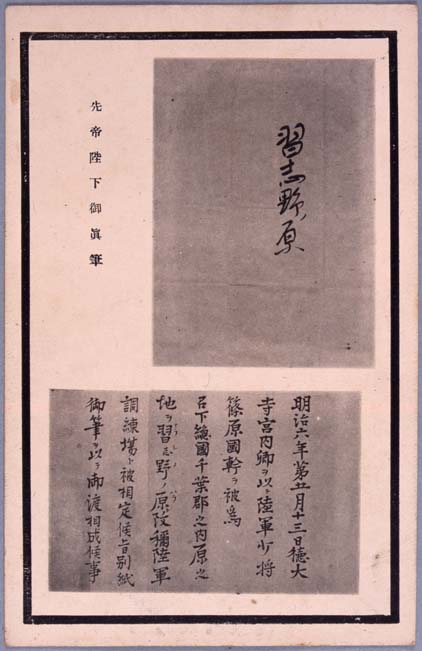 習志野ノ原
先帝陛下御眞筆
明治六年第五月十三日徳大
寺宮内卿ヲ以テ陸軍少将
篠原國幹ヲ被為
召下總國千葉郡之内原之
地ヲ習志野ノ原ト改稱陸軍
調練場ト被相定候旨別紙
御筆ヲ以テ御渡相成候事